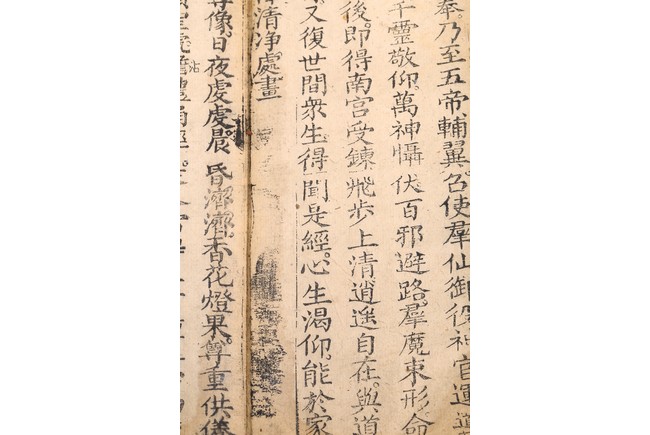 奉。乃至五帝輔翼。召使羣仙御役神官運
千靈敬仰。萬神懾伏百邪避路。羣魔束形命
後。即得南宮受鍊。飛步上清逍遥自在。與道
又復世間衆生得聞是經。心生渴仰。能於家
清净處畫
像。日夜虔虔晨昏濟濟香花燈果。尊重供儀